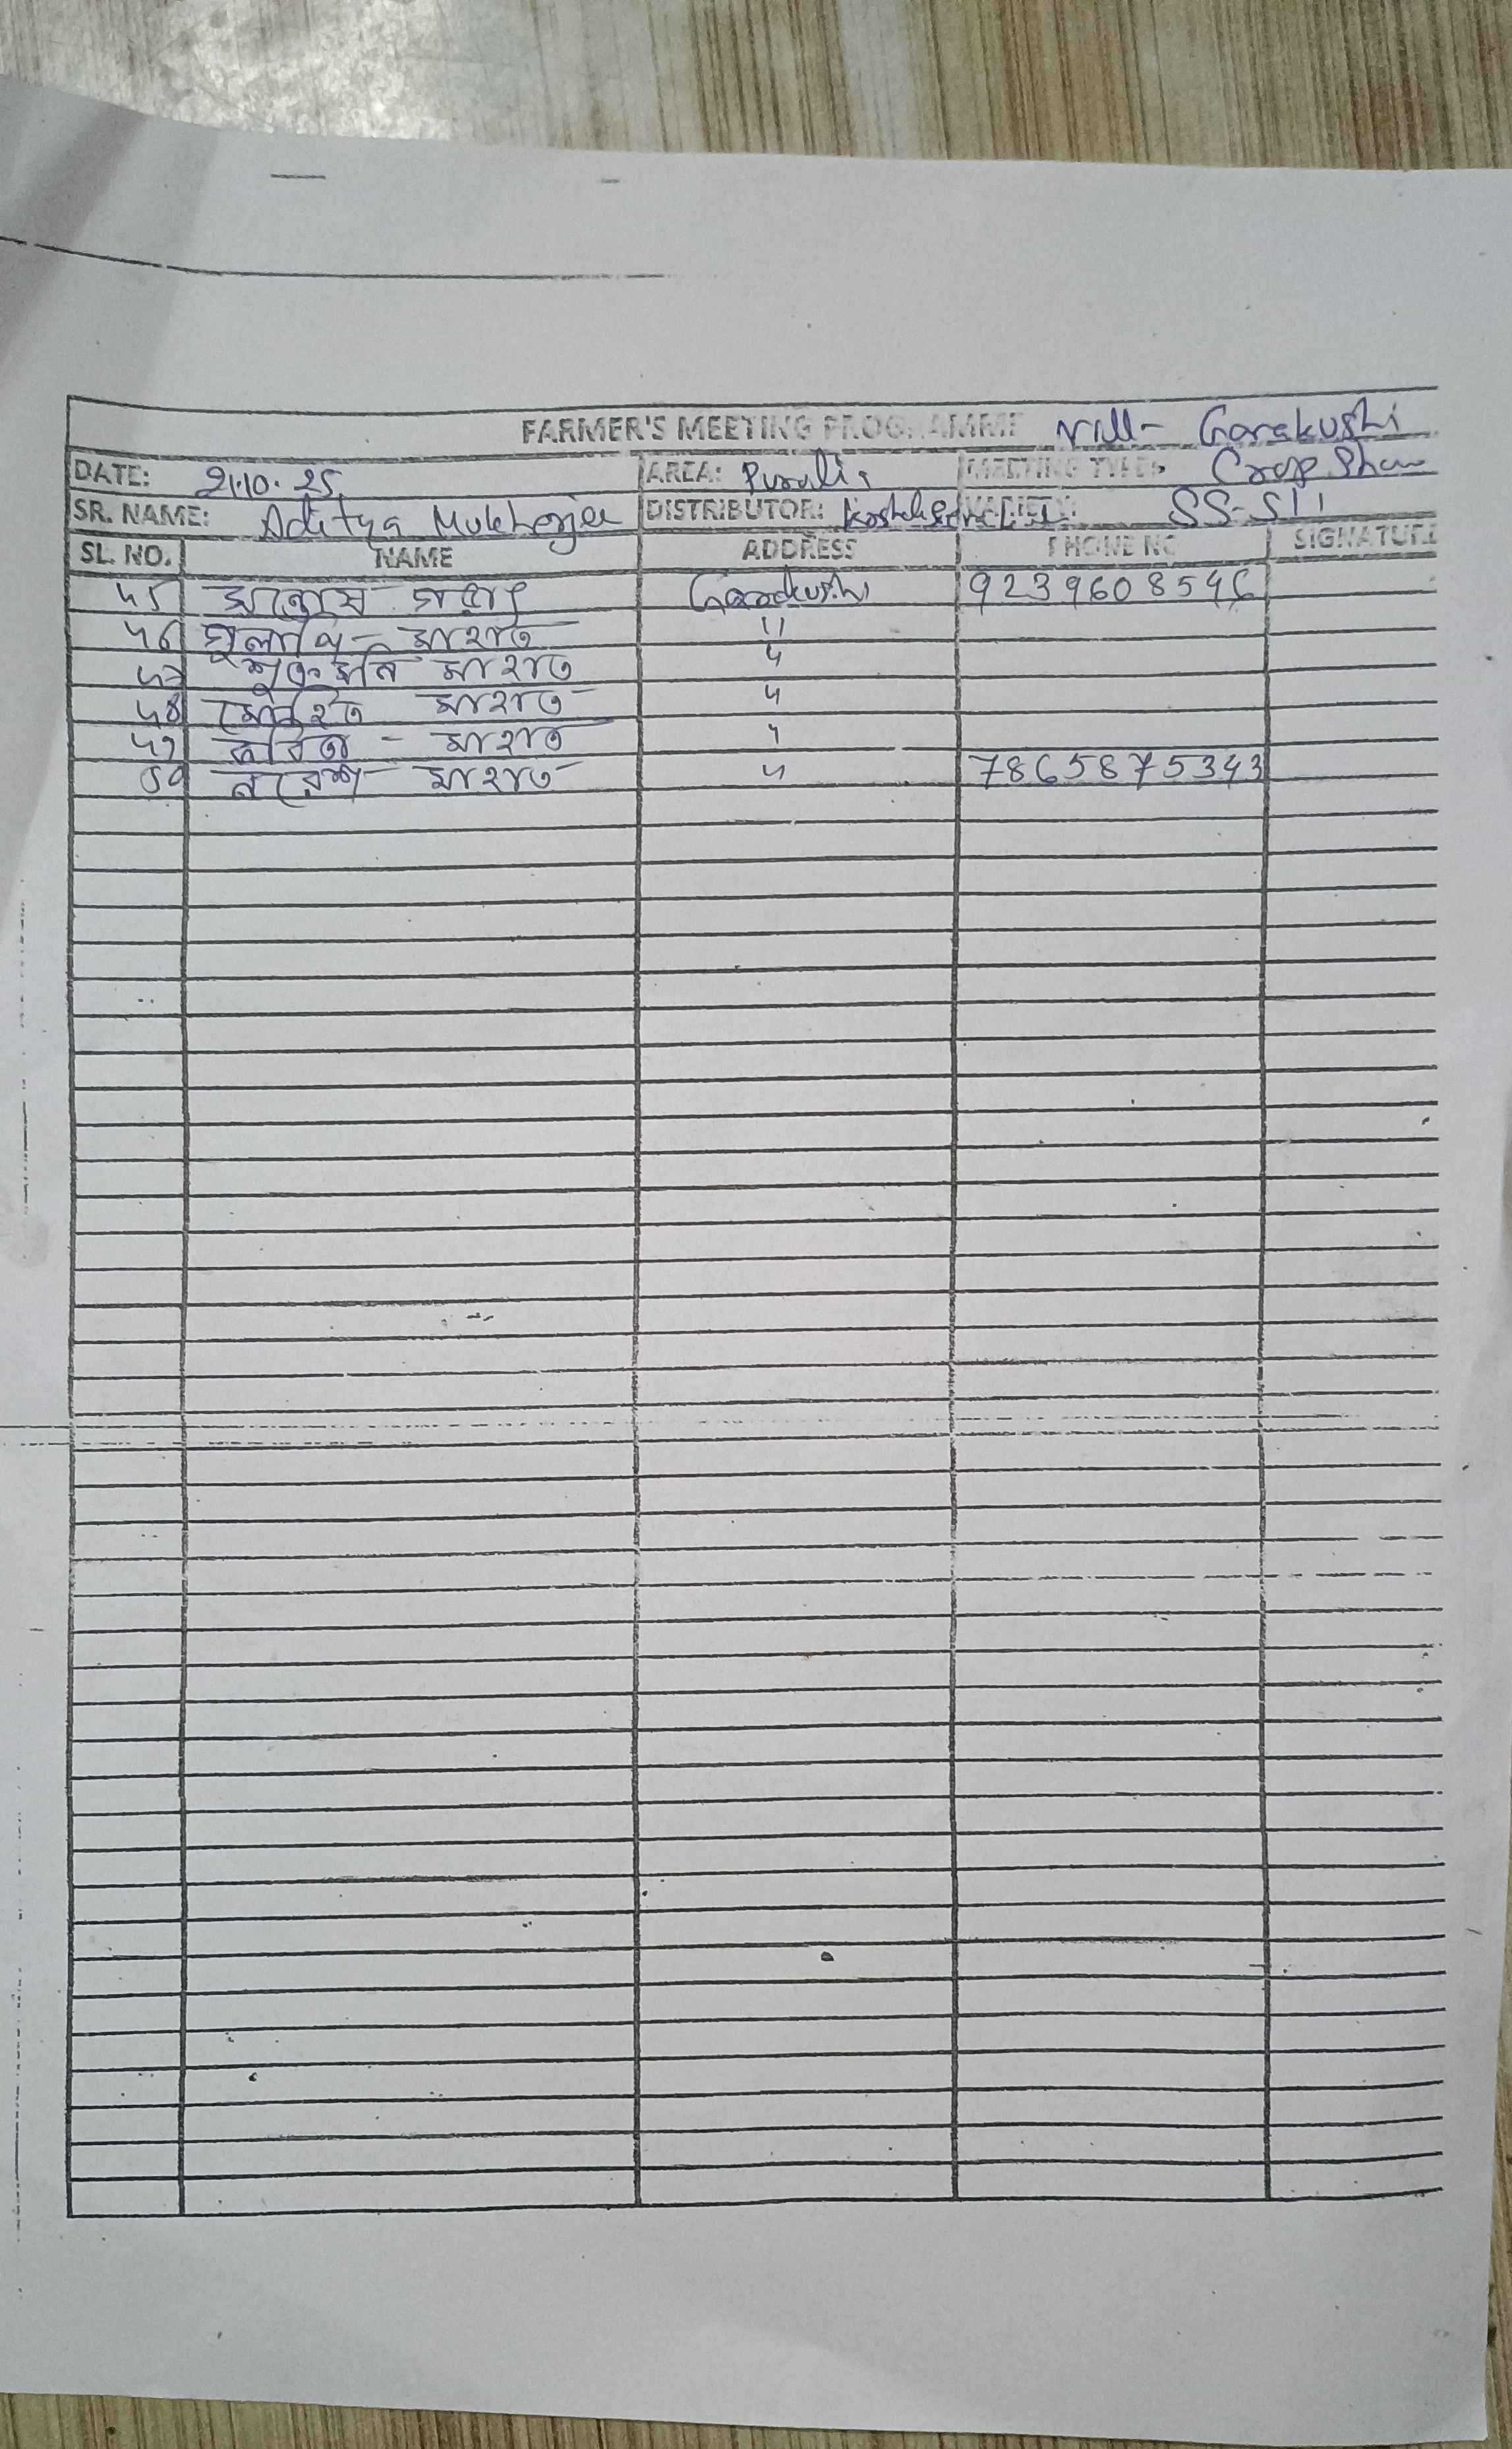 FARMER'S MEETING PROGRAMME Vill- Garakushi
DATE: 21.10.25 AREA: Purulia MEETING TYPE: Crop Show
SR. NAME: Aditya Mukherjee DISTRIBUTOR: VARIETY: SS-511
SL. NO. NAME ADDRESS PHONE NO SIGNATURE
৫৫ Garakushi 9239608546
৫৬ মাহাত 11
৫৭ মাহাত 4
৫৮ মাহাত 4
৫৯ কবিতা - মাহাত 4
৬০ নরেশ - মাহাত 4 7865875343